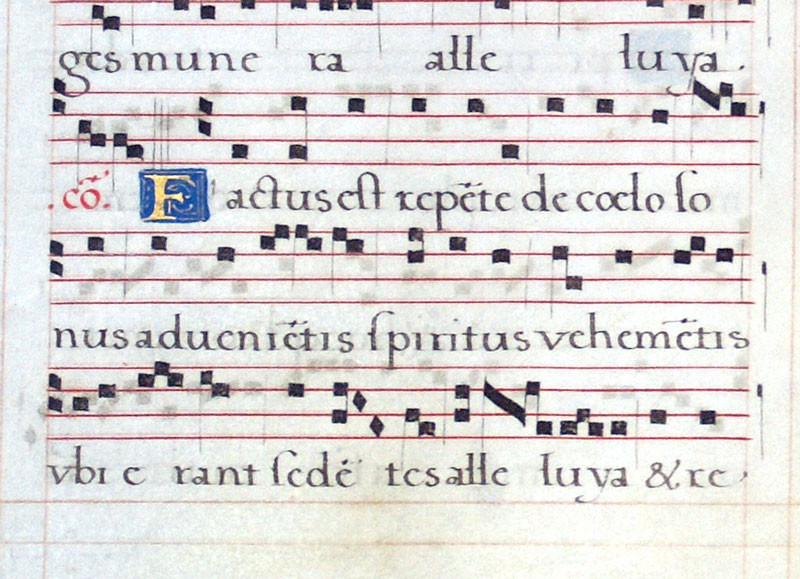 ges mune ra alle luya .
.cō. Factus est repēte de cœlo so
nus adueniētis spiritus vehemētis
vbi e rant sedē tes alle luya & re